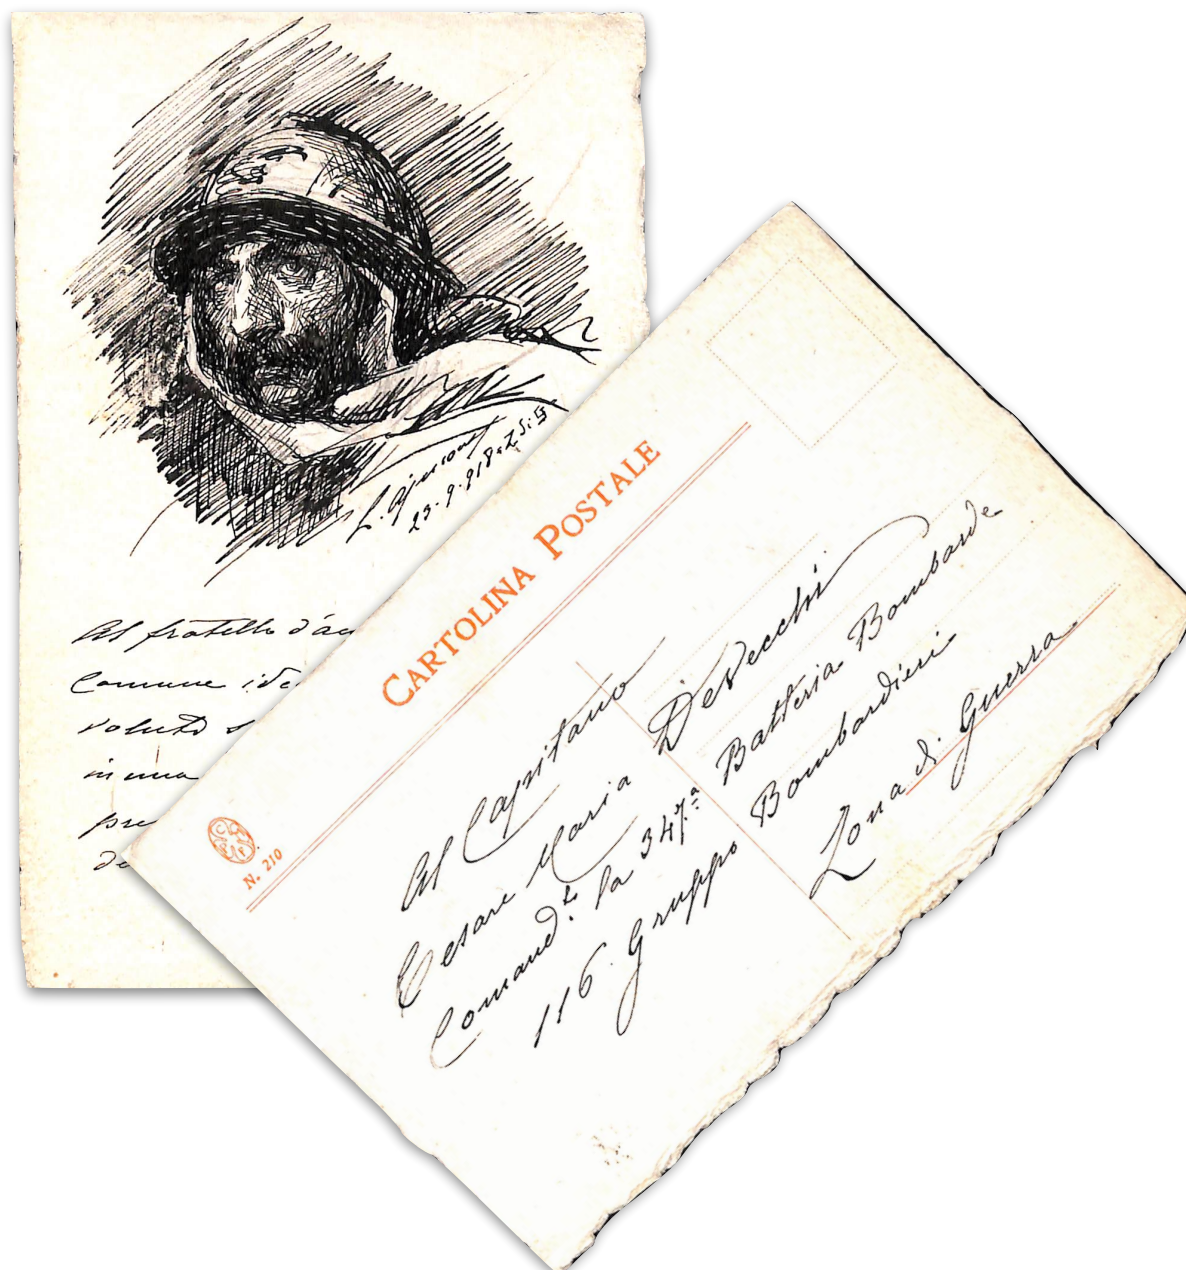 23-9-918. Z.
Al fratello d'
Comune
voluto
in una
CARTOLINA POSTALE
N. 210
Al Capitano
Cesare Maria DeVecchi
Comand.te la 347.a Batteria Bombarde
116. Gruppo Bombardieri
Zona di Guerra